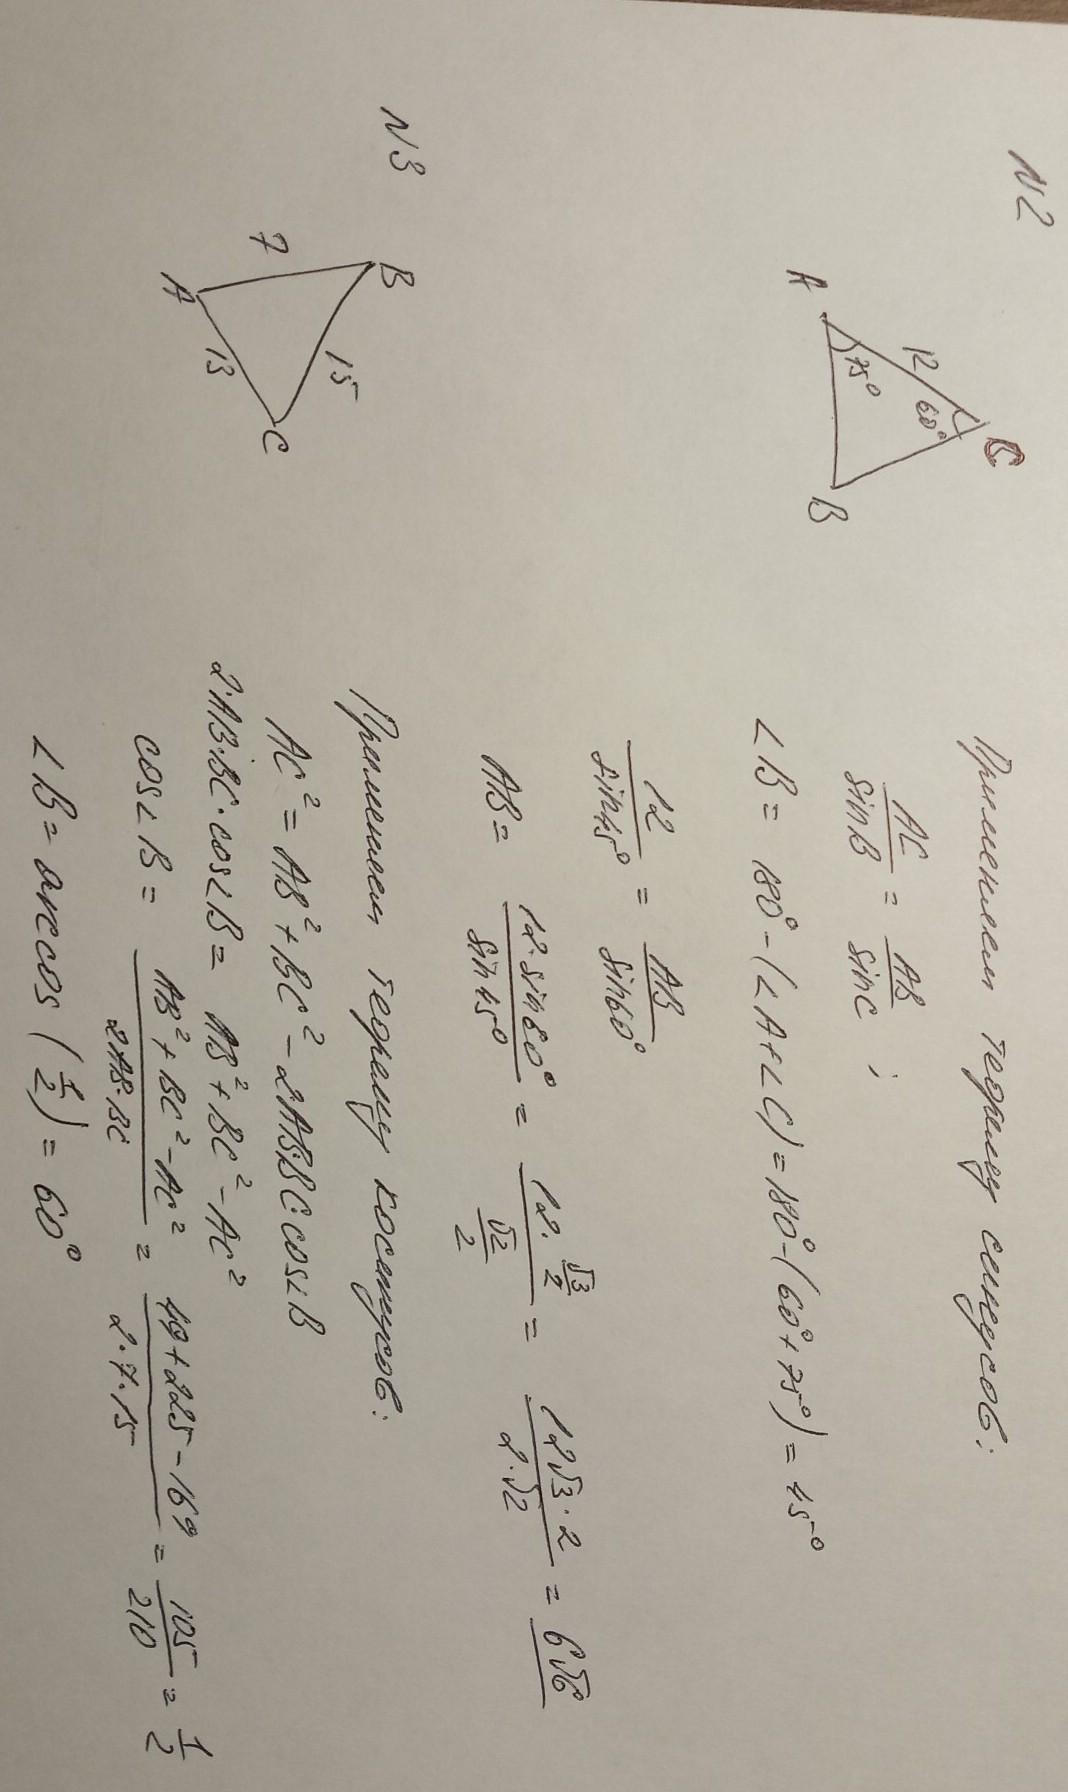 N2
C
12
60°
75°
A
B
Применяем теорему синусов:
AC/sinB = AB/sinC ;
∠B = 180° - (∠A+∠C) = 180° - (60° + 75°) = 45°
12/sin45° = AB/sin60°
AB = 12·sin60°/sin45° = (12·√3/2)/(√2/2) = 12√3·2/2·√2 = 6√6
N3
B
7
15
A
13
C
Применяем теорему косинусов:
AC² = AB² + BC² - 2AB·BC·cos∠B
2·AB·BC·cos∠B = AB² + BC² - AC²
cos∠B = AB² + BC² - AC²/2AB·BC = 49+225-169/2·7·15 = 105/210 = 1/2
∠B = arccos (1/2) = 60°